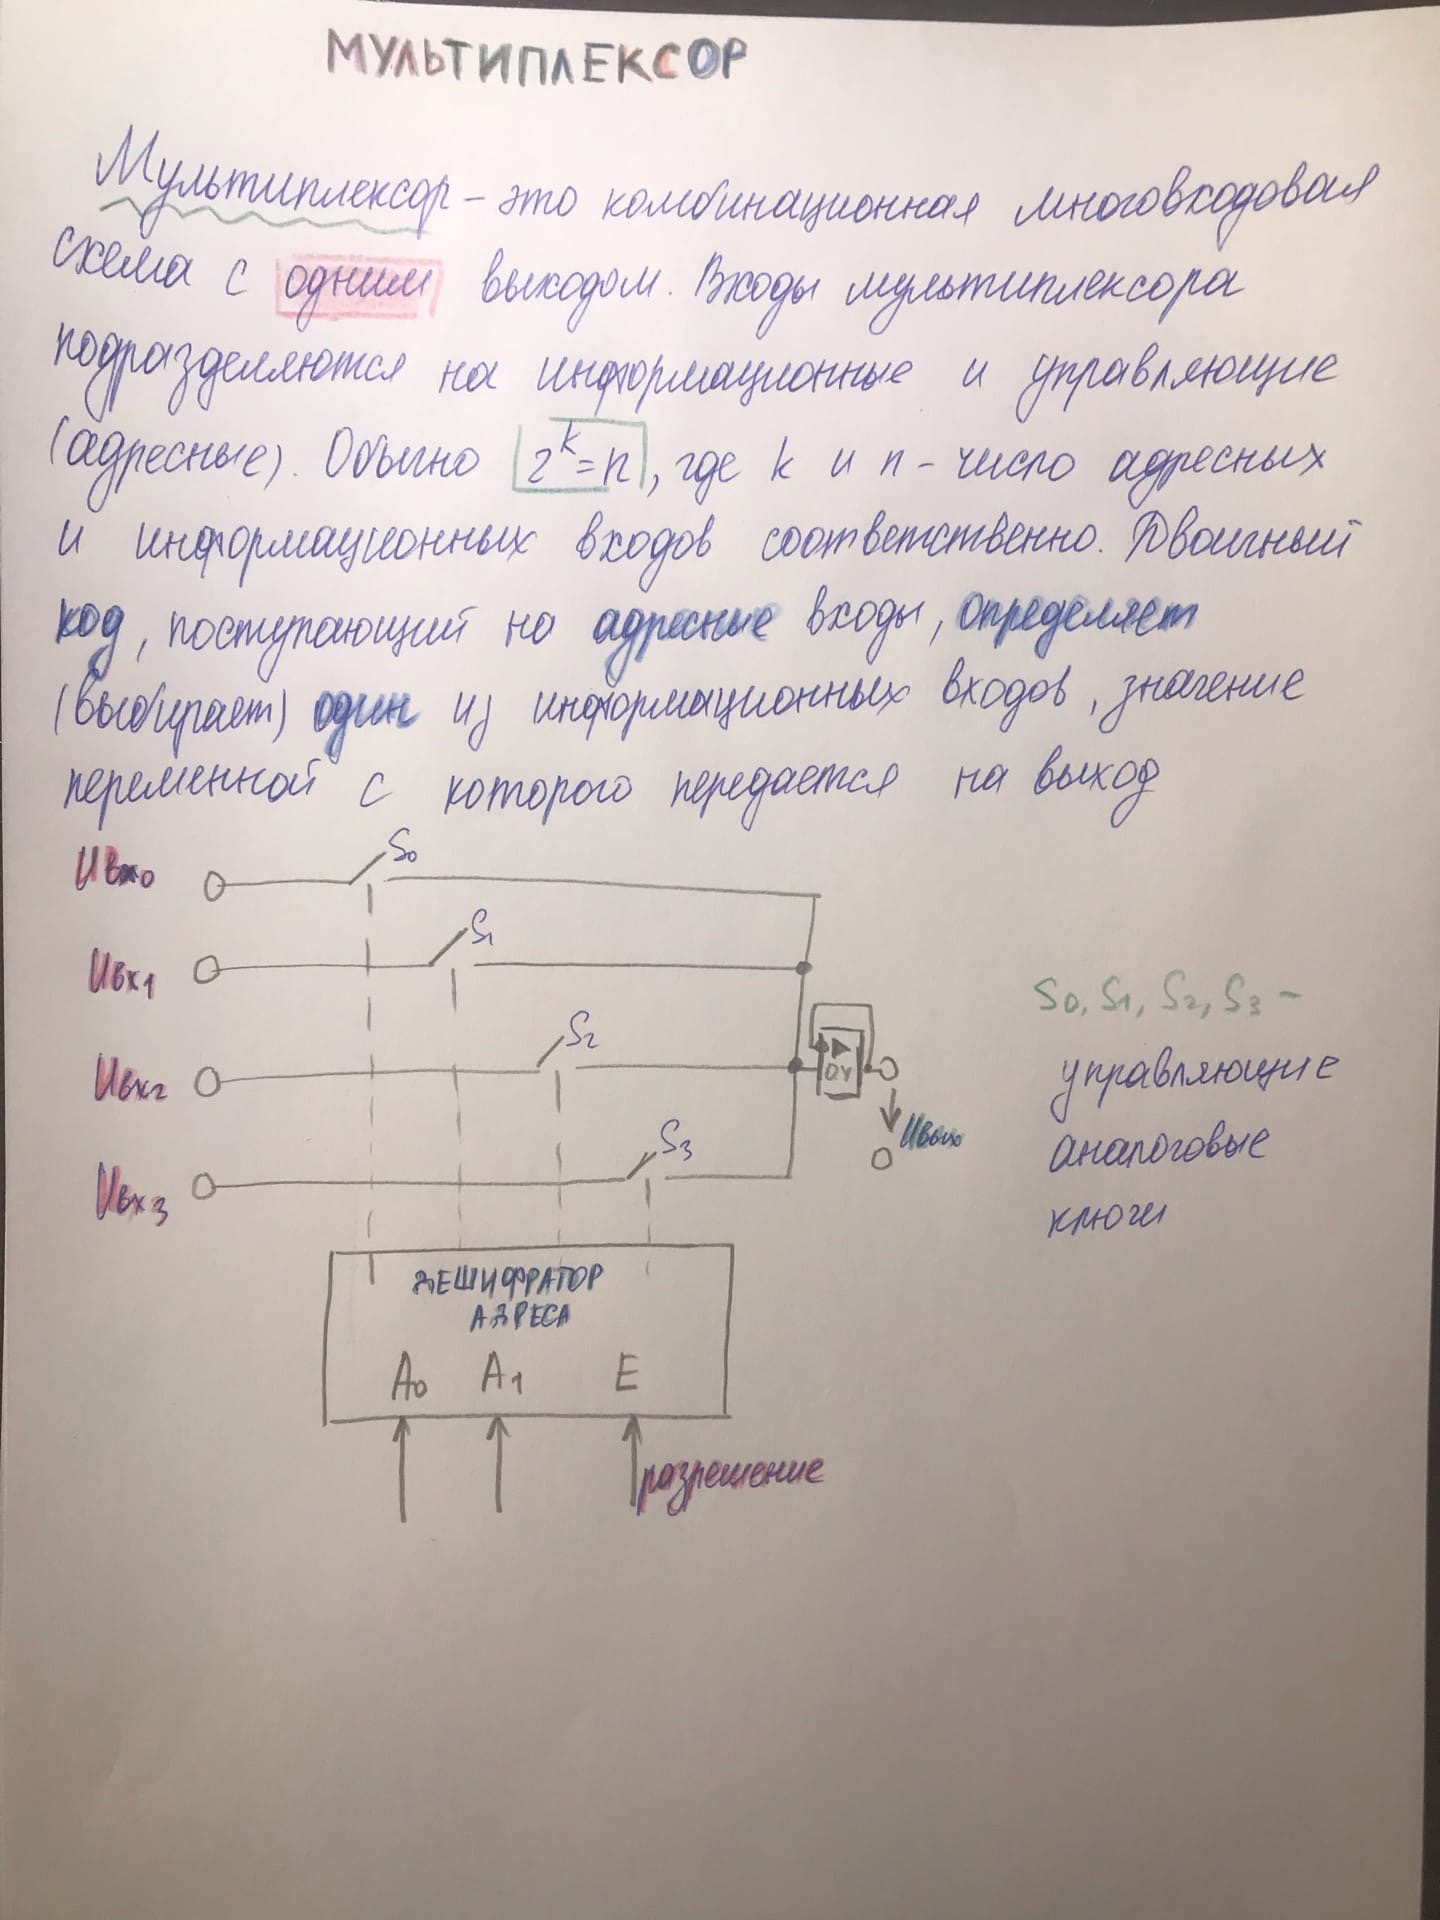 МУЛЬТИПЛЕКСОР
Мультиплексор – это комбинационная многовходовая
схема с одним выходом. Входы мультиплексора
подразделяются на информационные и управляющие
(адресные). Обычно 2^k=n, где k и n – число адресных
и информационных входов соответственно. Двоичный
код, поступающий на адресные входы, определяет
(выбирает) один из информационных входов, значение
переменной с которого передается на выход
Uвх0
S0
Uвх1
S1
Uвх2
S2
Uвх3
S3
ОУ
Uвых
S0, S1, S2, S3 –
управляющие
аналоговые
ключи
ДЕШИФРАТОР
АДРЕСА
A0 A1 E
разрешение